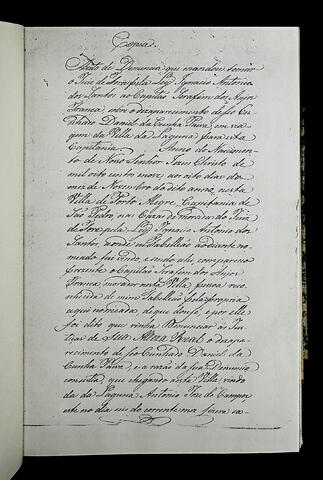 Copia.
Auto de Denuncia que mandou formar
o Juiz de Fora pela Ley Ignacio Antonio
dos Santos ao Capitão Serafim dos Anjos
França, sobre o dezaparecimento de seo Cu-
nhado Daniel da Cunha Paiva, em via
gem da Villa da Laguna para esta
Capitania Anno do Nascimen-
to de Nosso Senhor Jezus Christo de
mil oito centos nove, aos oito dias do
mez de Novembro do dito anno, nesta
Villa de Porto Alegre, Capitania de
São Pedro, e nas Cazas de morada do Juiz
de Fora pela Ley Ignacio Antonio dos
Santos, aonde eu Tabellião ao diante no-
meado fui vindo, e sendo ahi, compareceo
prezente o Capitão Serafim dos Anjos
França morador nesta Villa, pessoa reco-
nhecida de mim Tabellião pela propria
aqui nomeada, de que dou fé, e por elle
foi dito que vinha Denunciar às Jus-
tiças de Sua Alteza Real o dezapa-
recimento de seo Cunhado Daniel da
Cunha Paiva, e a razão da sua Denuncia
consistia, que chegando a esta Villa, vindo
da da Laguna Antonio Joze de Campos,
este no dia seis do corrente mez para